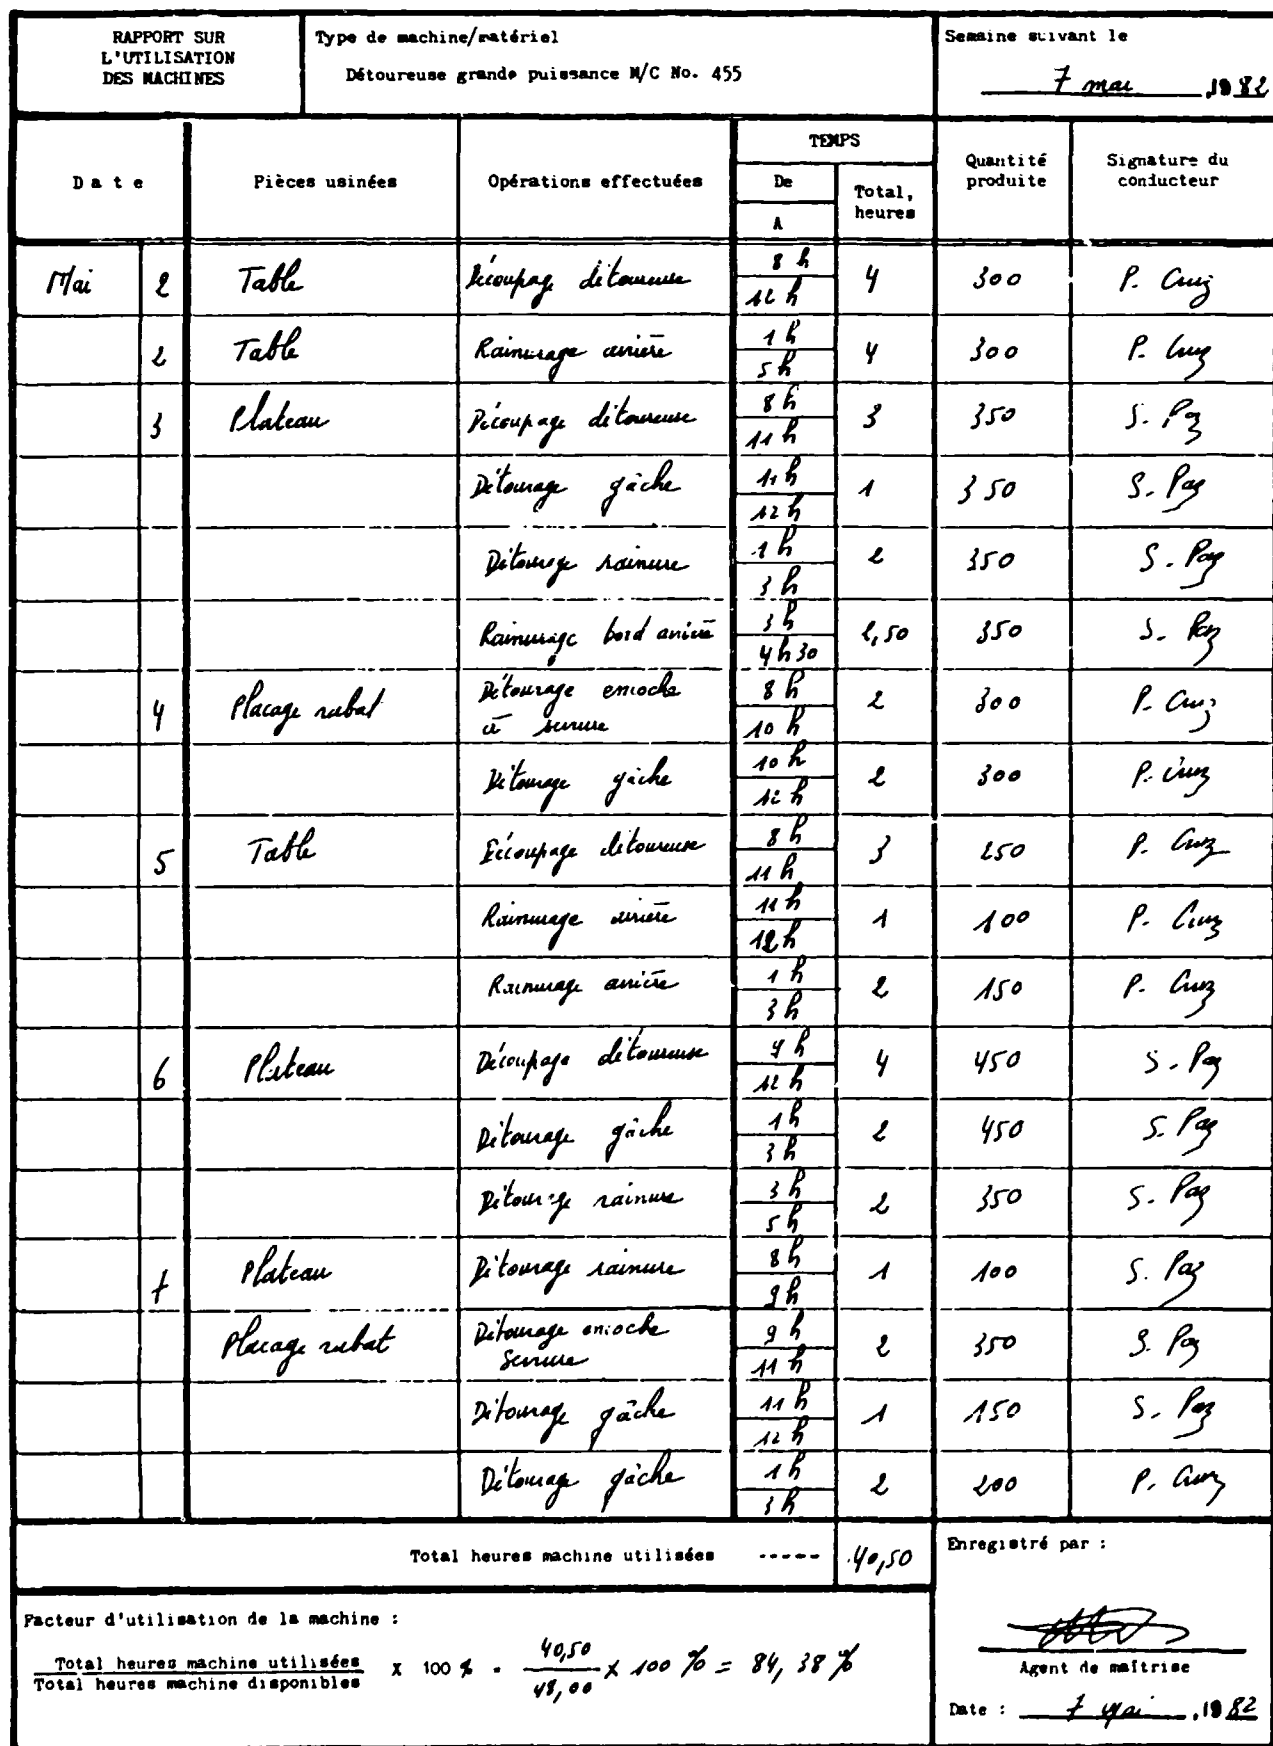 RAPPORT SUR
L'UTILISATION
DES MACHINES
Type de machine/matériel
Détoureuse grande puissance M/C No. 455
Semaine suivant le
7 mai 1982
Date
Pièces usinées
Opérations effectuées
TEMPS
De
A
Total,
heures
Quantité
produite
Signature du
conducteur
Mai 2 Table Découpage détoureuse 8 h 12 h 4 300 P. Cruz
2 Table Rainurage arrière 1 h 5 h 4 300 P. Cruz
3 Plateau Découpage détoureuse 8 h 11 h 3 350 S. Paz
Détourage gâche 11 h 12 h 1 350 S. Paz
Détourage rainure 1 h 3 h 2 350 S. Paz
Rainurage bord arrière 3 h 4 h 30 2,50 350 S. Paz
4 Placage rabat Détourage encoche
à serrure 8 h 10 h 2 300 P. Cruz
Détourage gâche 10 h 12 h 2 300 P. Cruz
5 Table Découpage détoureuse 8 h 11 h 3 250 P. Cruz
Rainurage arrière 11 h 12 h 1 100 P. Cruz
Rainurage arrière 1 h 3 h 2 150 P. Cruz
6 Plateau Découpage détoureuse h 12 h 4 450 S. Paz
Détourage gâche 1 h 3 h 2 450 S. Paz
Détourage rainure 3 h 5 h 2 350 S. Paz
7 Plateau Détourage rainure 8 h 9 h 1 100 S. Paz
Placage rabat Détourage encoche
serrure 9 h 11 h 2 350 S. Paz
Détourage gâche 11 h 12 h 1 150 S. Paz
Détourage gâche 1 h 3 h 2 200 P. Cruz
Total heures machine utilisées ----- 40,50
Enregistré par :
Facteur d'utilisation de la machine :
Total heures machine utilisées
Total heures machine disponibles
X 100 % = 40,50 / 48,00 x 100 % = 84,38 %
Agent de maîtrise
Date : 7 Mai, 1982